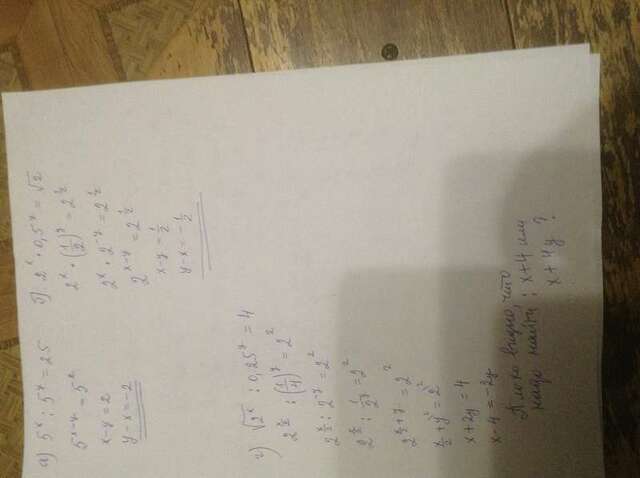 а) 5^x : 5^y = 25
5^{x-y} = 5^2
x-y = 2
y-x = -2
б) 2^x · 0,5^y = √2
2^x · (1/2)^y = 2^{1/2}
2^x · 2^{-y} = 2^{1/2}
2^{x-y} = 2^{1/2}
x-y = 1/2
y-x = -1/2
г) √2^x : 0,25^y = 4
2^{x/2} : (1/4)^y = 2^2
2^{x/2} : 2^{-y} = 2^2
2^{x/2} : 1/2^y = 2^2
2^{x/2+y} = 2^2
x/2 + y = 2
x+2y = 4
x-4 = -2y
Плохо видно, что
надо найти : x+4 или
x+4y ?